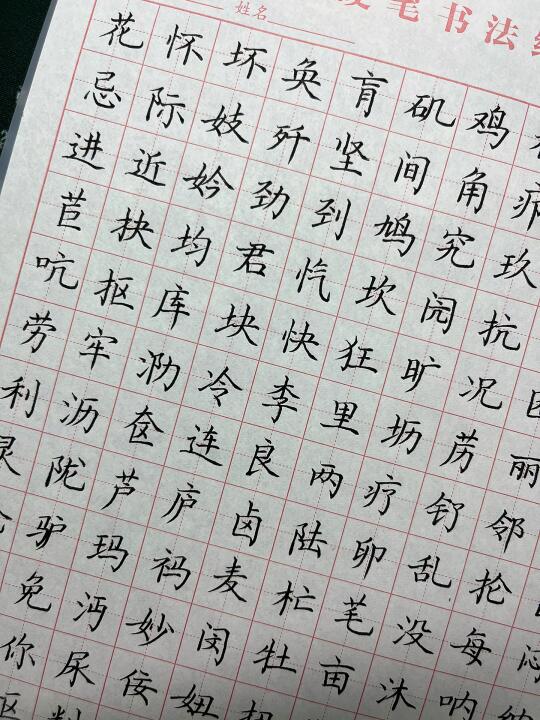 姓名 硬笔书法
花怀坏奂肓矶鸡
忌际妓歼坚间角疖
进近妗劲到鸠究玖
苣抉均君忾坎闶抗
吭抠库块快狂旷况
劳牢泐冷李里坜苈丽
利沥奁连良两疗钌邻
灵陇芦庐卤陆卵乱抡
驴玛祃麦杧芼没每
免沔妙闵牡亩沐呐
你尿佞妞